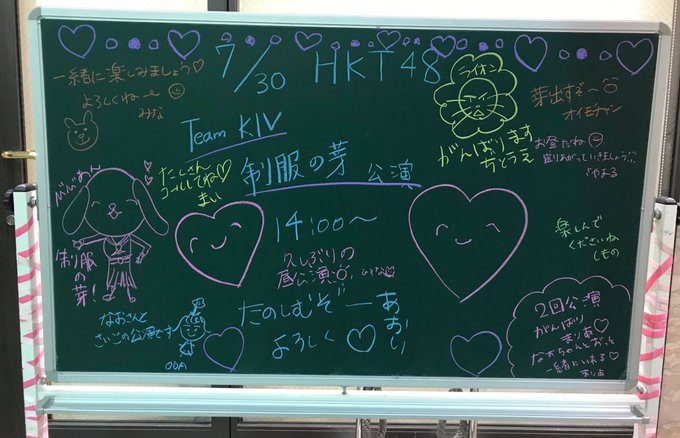 7/30 HKT48
一緒に楽しみましょう♡
よろしくねー
みな
Team KIV
制服の芽 公演
たくさん
コールしてね♡
まい
ライオン
がんばります
ちとうえ
芽出すぞ〜
オイモチャン
お昼だね
盛りあがっていきましょう!!
びびあん
制服
の
芽!
14:00〜
久しぶりの
昼公演
楽しんで
くださいね
くもの
なおさんと
さいごの公演です
ODA
たのしむぞー
あおい
よろしく♡
2回公演
がんばり
まりあ♡
なおちゃんとおっそ
一緒にいれる♡
まりあ